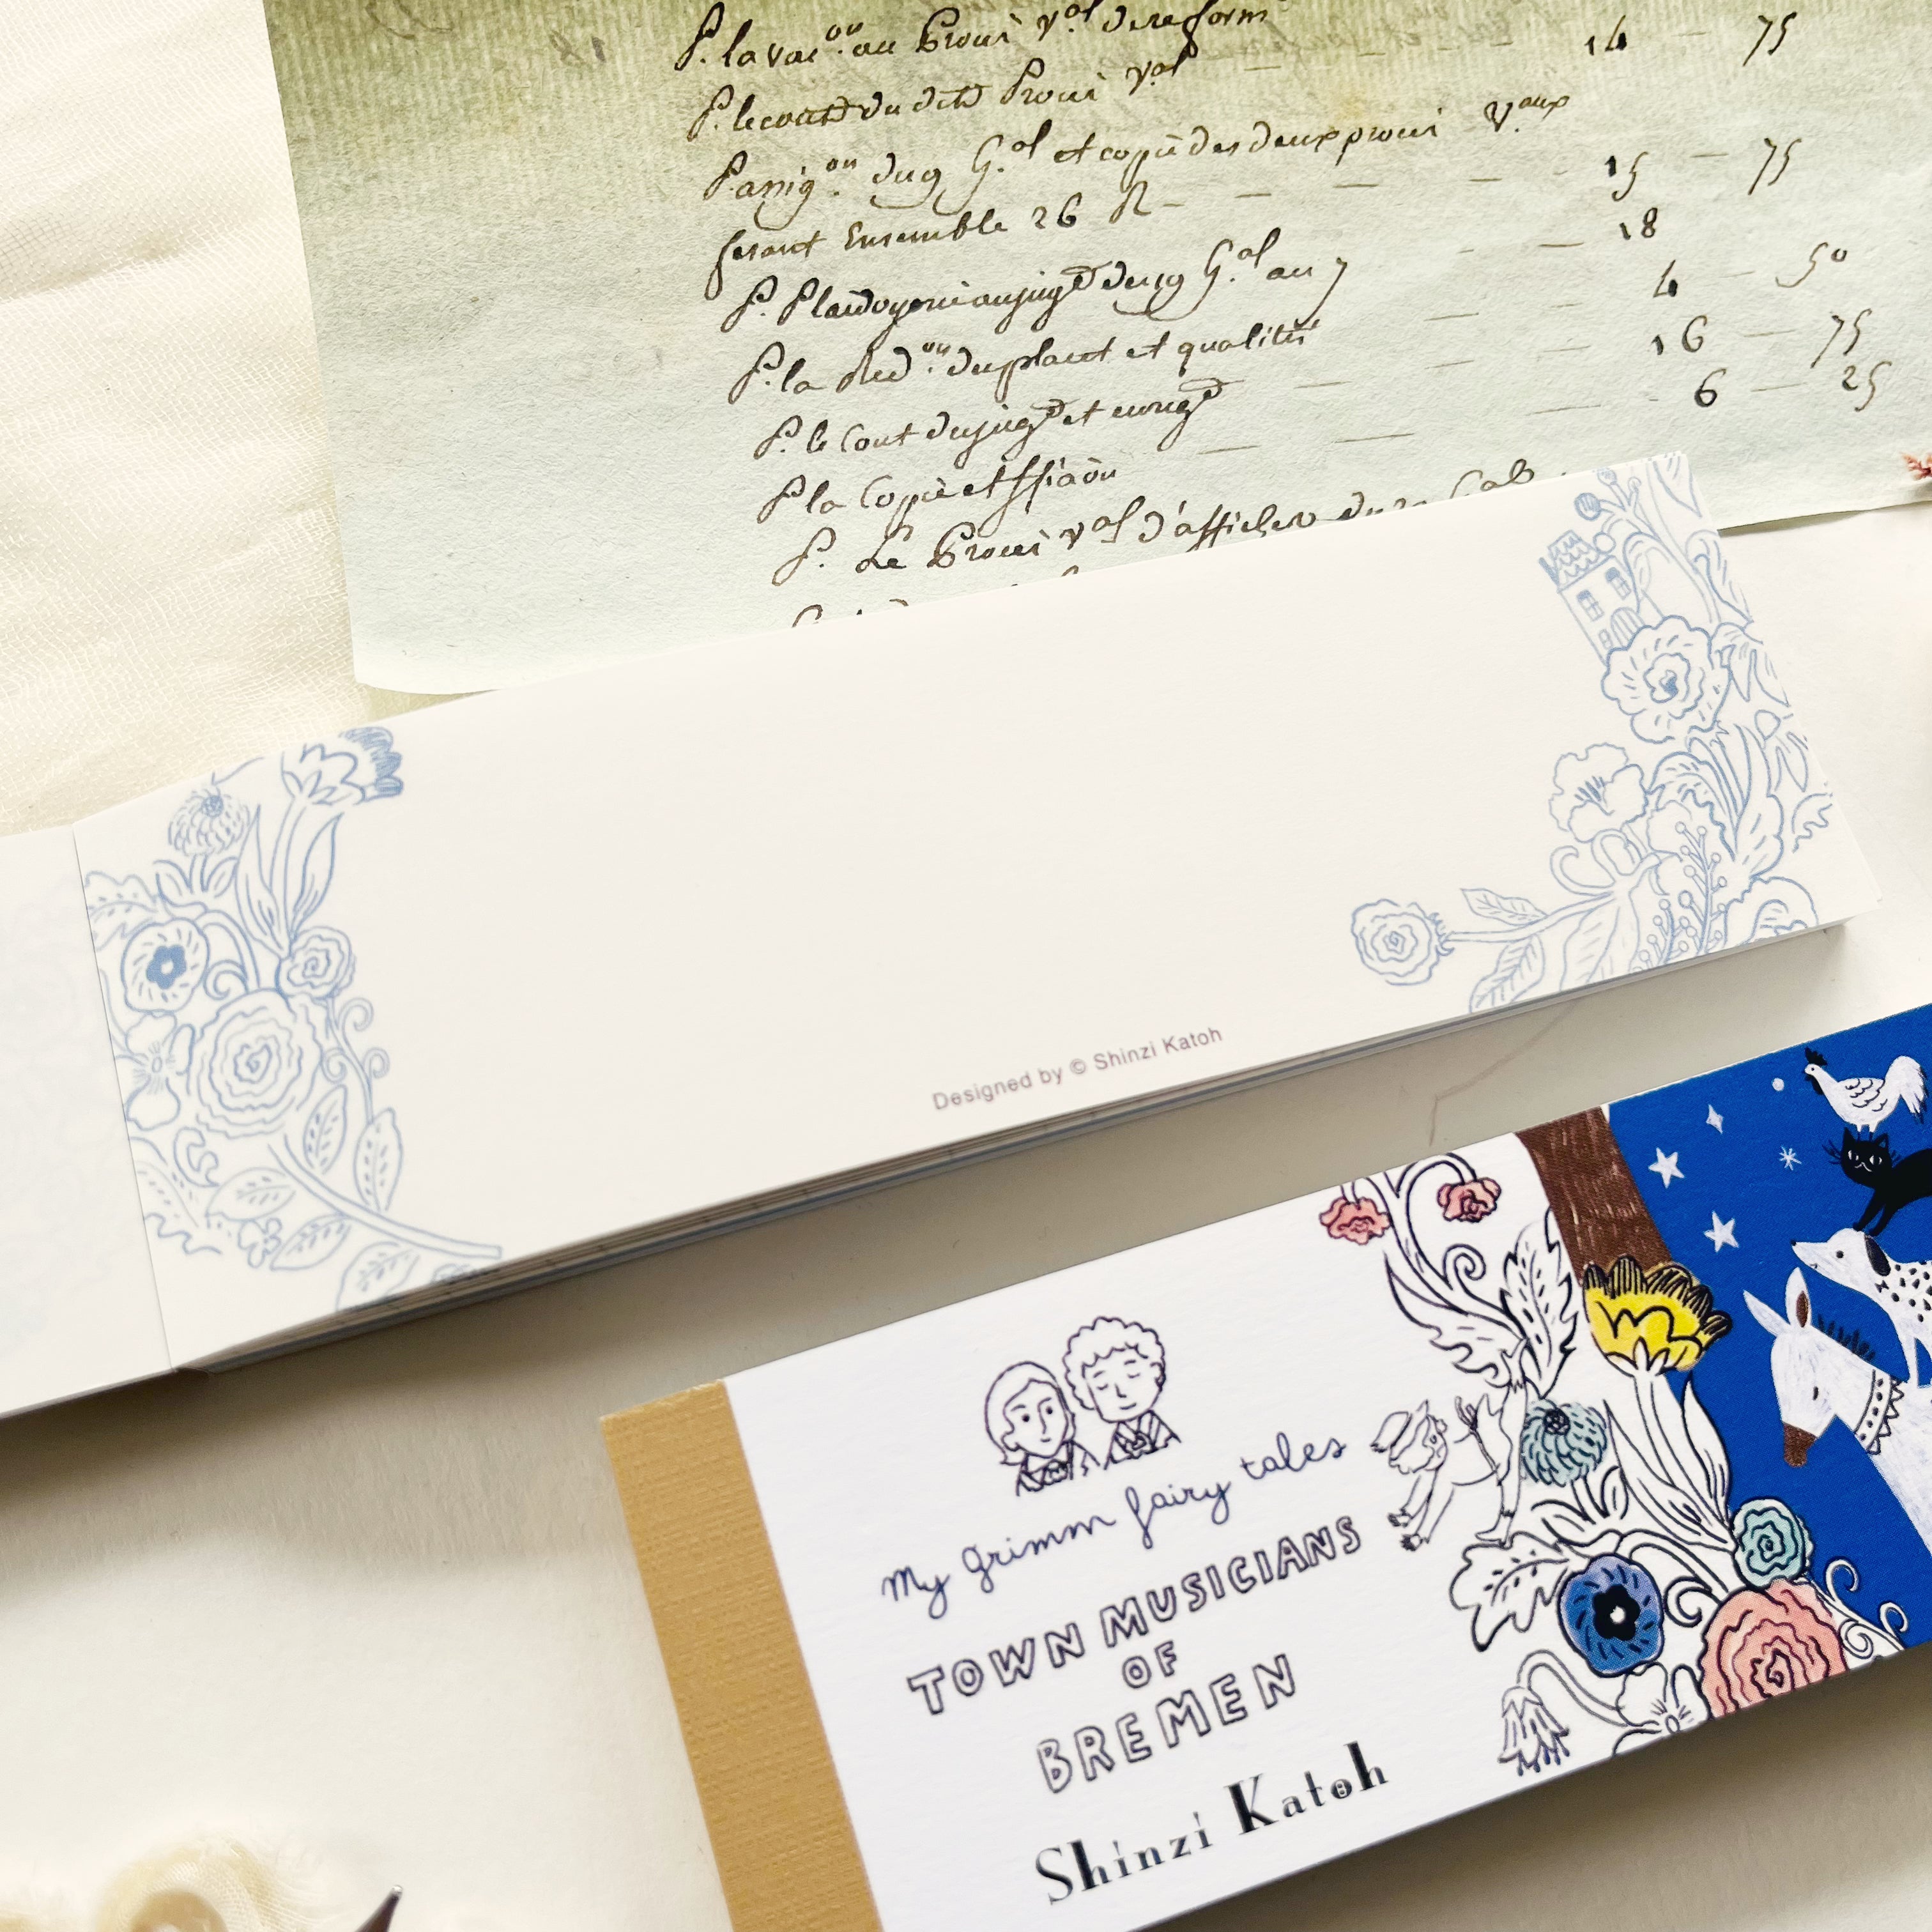 P. la vac.on au Proces v.al de reform — — — 14 — 75
P. le coust du dit Proces v.al
P. assig.on du g G.al et copie des deux proces v.aux
feront Ensemble 26 R — — — — 15 — 75
18
P. Plaidoyerie au jug G.al au 7 — — 4 — 50
P. la Red.on du plait et qualités — — 16 — 75
P. le Cout du jug et — — 6 — 25
P la Copie et
P. Le Proces v.al d'afficher
Designed by © Shinzi Katoh
My grimm fairy tales
TOWN MUSICIANS
OF
BREMEN
Shinzi Katoh